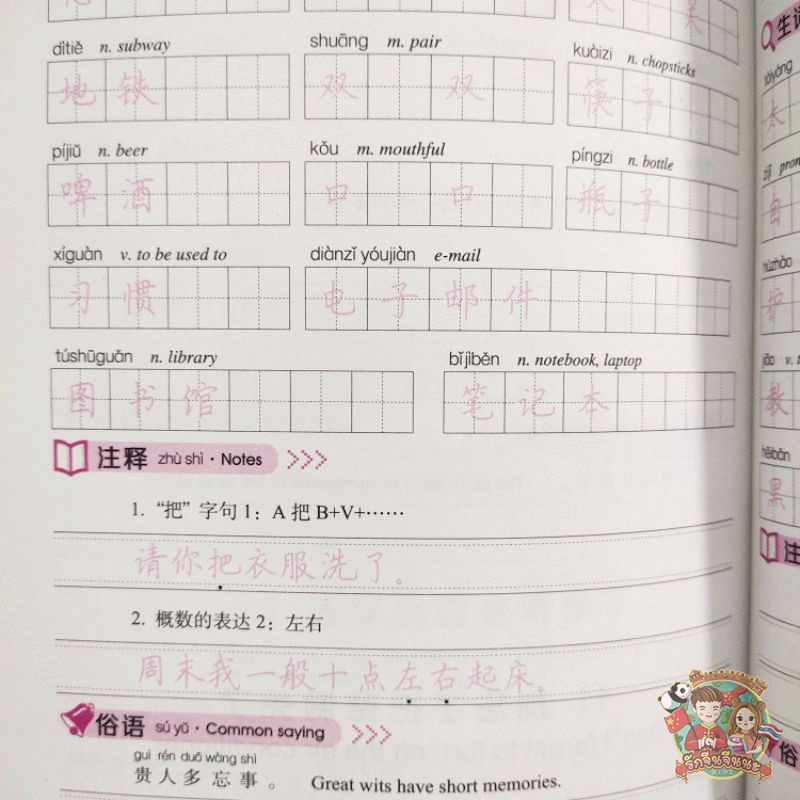 dìtiě n. subway
shuāng m. pair
kuàizi n. chopsticks
地铁
双 双
筷子
píjiǔ n. beer
kǒu m. mouthful
píngzi n. bottle
啤酒
口 口
瓶子
xíguàn v. to be used to
diànzǐ yóujiàn e-mail
习惯
电子邮件
túshūguǎn n. library
bǐjìběn n. notebook, laptop
图书馆
笔记本
注释 zhù shì · Notes
1. “把”字句 1：A 把 B+V+……
请你把衣服洗了。
2. 概数的表达 2：左右
周末我一般十点左右起床。
俗语 sú yǔ · Common saying
guì rén duō wàng shì
贵人多忘事。 Great wits have short memories.
生词
tàiyáng
太
zìjǐ pron
自
hùzhào
护
jiāo v. t
教
hēibǎn
黑
注
俗
รักจีนจีนนะ